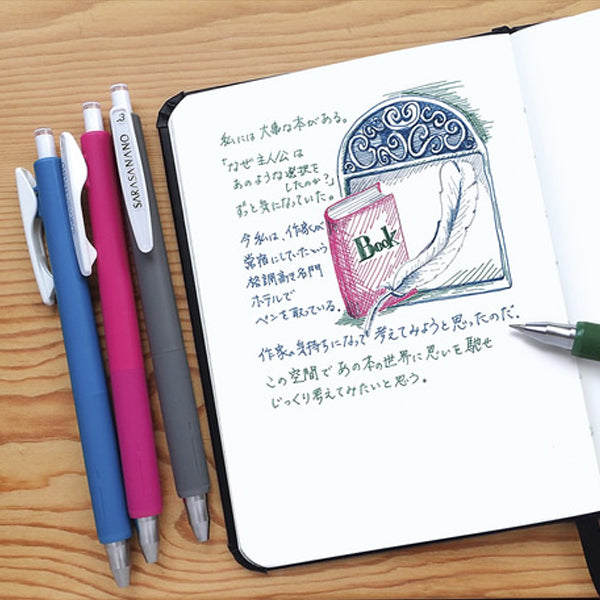 SARASA NANO
0.3
私には大事な本がある。
「なぜ主人公は
あのような選択を
したのか?」
ずっと気になっていた。
今私は、作家が
常宿にしていたという
格調高き名門
ホテルで
ペンを取っている。
作家の気持ちになって考えてみようと思ったのだ。
この空間であの本の世界に思いを馳せ
じっくり考えてみたいと思う。
Book